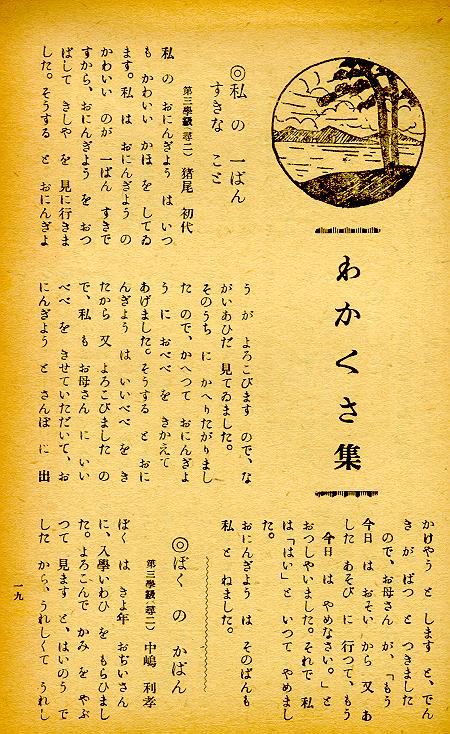 わかくさ集
◎私 の 一ばん
すきな こと
第三學級(尋二) 猪尾 初代
私 の おにんぎよう は いつ
も かわいい かほ を してゐ
ます。私 は おにんぎよう の
かわいい のが 一ばん すきで
すから、おにんぎよう を おつ
ばして きしや を 見に行きま
した。そうする と おにんぎよ
う が よろこびます ので、な
がいあひだ 見てゐました。
そのうち に かへりたがりまし
た ので、かへつて おにんぎよ
う に おべべ を きかえて
あげました。そうする と おに
んぎよう は いいべべ を き
たから 又 よろこびました の
で、私 も お母さん に いい
べべ を きせていただいて、お
にんぎよう と さんぽ に 出
かけやう と します と、でん
き が ぱつ と つきました
ので、お母さん が、「もう
今日 は おそい から 又 あ
した あそび に 行つて、もう
今日 は やめなさい。」と
おつしやいました。それで 私
は「はい」と いつて やめまし
た。
おにんぎよう は そのばんも
私 と ねました。
◎ぼく の かばん
第三學級(尋二) 中嶋 利孝
ぼく は きよ年 おぢいさん
に、入學いわひ を もらひまし
た。よろこんで かみ を やぶ
つて 見ます と、はいのう で
した から、うれしくて うれし
一九